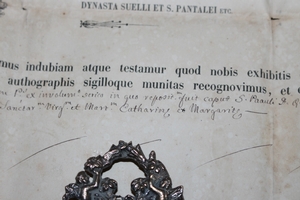 DYNASTA SUELLI ET S. PANTALEI ETC.
mus indubiam atque testamur quod nobis exhibitis
authographis sigilloque munitas recognovimus, et
ex involum. serico in quo reposit. fuit caput S. Pauli
et Mart. Catharinæ et Margaritæ